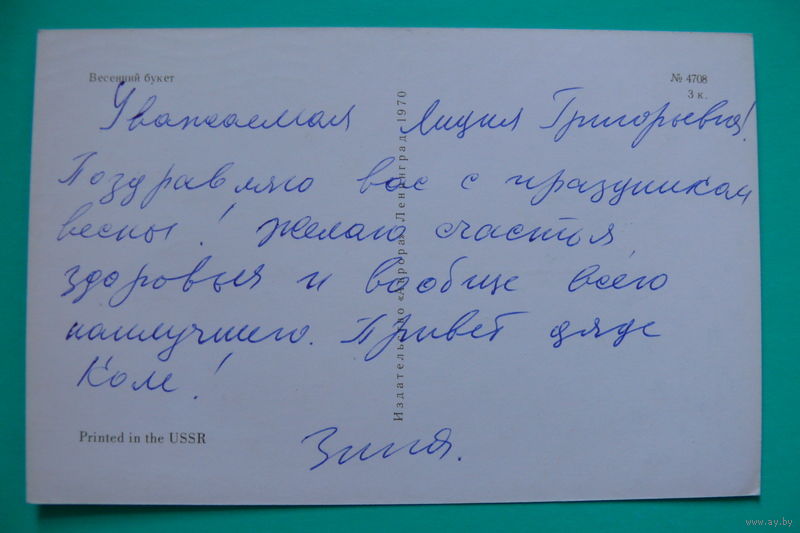 Весенний букет
№ 4708
3 к.
Уважаемая Лидия Григорьевна!
Поздравляю вас с праздником
весны! Желаю счастья,
здоровья и вообще всего
наилучшего. Привет дяде
Коле!
Зина.
Издательство «Аврора» Ленинград 1970
Printed in the USSR
www.ay.by